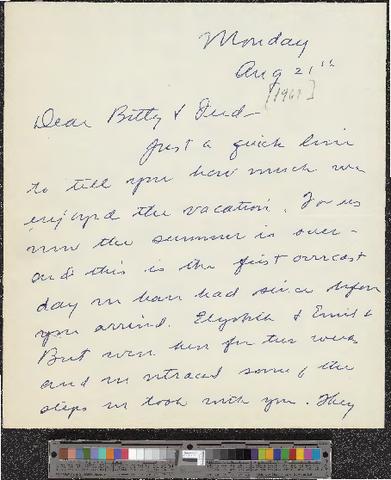 Monday
Aug 21st
[1967]
Dear Betty & Dud-
Just a quick line
to tell you how much we
enjoyed the vacation. For us
now the summer is over-
and this is the first overcast
day we have had since before
you arrived. Elizabeth & Emil &
Burt were here for two weeks
and we retraced some of the
steps we took with you. They